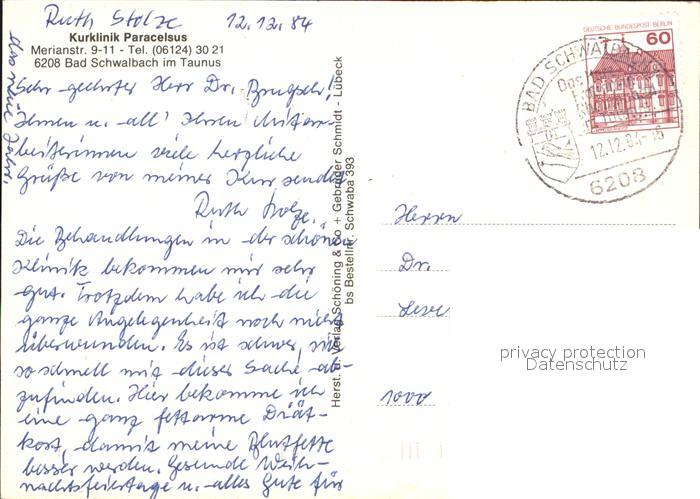 Ruth Stolze 12.12.84
Kurklinik Paracelsus
Merianstr. 9-11 - Tel. (06124) 30 21
6208 Bad Schwalbach im Taunus
Sehr geehrter Herr Dr.
Ihnen u. all' Ihren Mitar-
beiterinnen viele herzliche
Grüße von meiner Kur sendet
Ruth Stolze.
Die Behandlungen in der schönen
Klinik bekommen mir sehr
gut. Trotzdem habe ich die
ganze Angelegenheit noch nicht
überwunden. Es ist schwer, sich
so schnell mit dieser Sache ab-
zufinden. Hier bekomme ich
eine ganz fettarme Diät-
kost, damit meine Blutfette
besser werden. Gesunde Weih-
nachtsfeiertage u. alles Gute für
das neue Jahr.
Herst. u. Verlag Schöning & Co + Gebrüder Schmidt - Lübeck
bs Bestellnr. Schwaba 393
DEUTSCHE BUNDESPOST BERLIN
60
BAD SCHWALBACH
12.12.84-16
6208
Herrn
Dr.
1000
privacy protection
Datenschutz